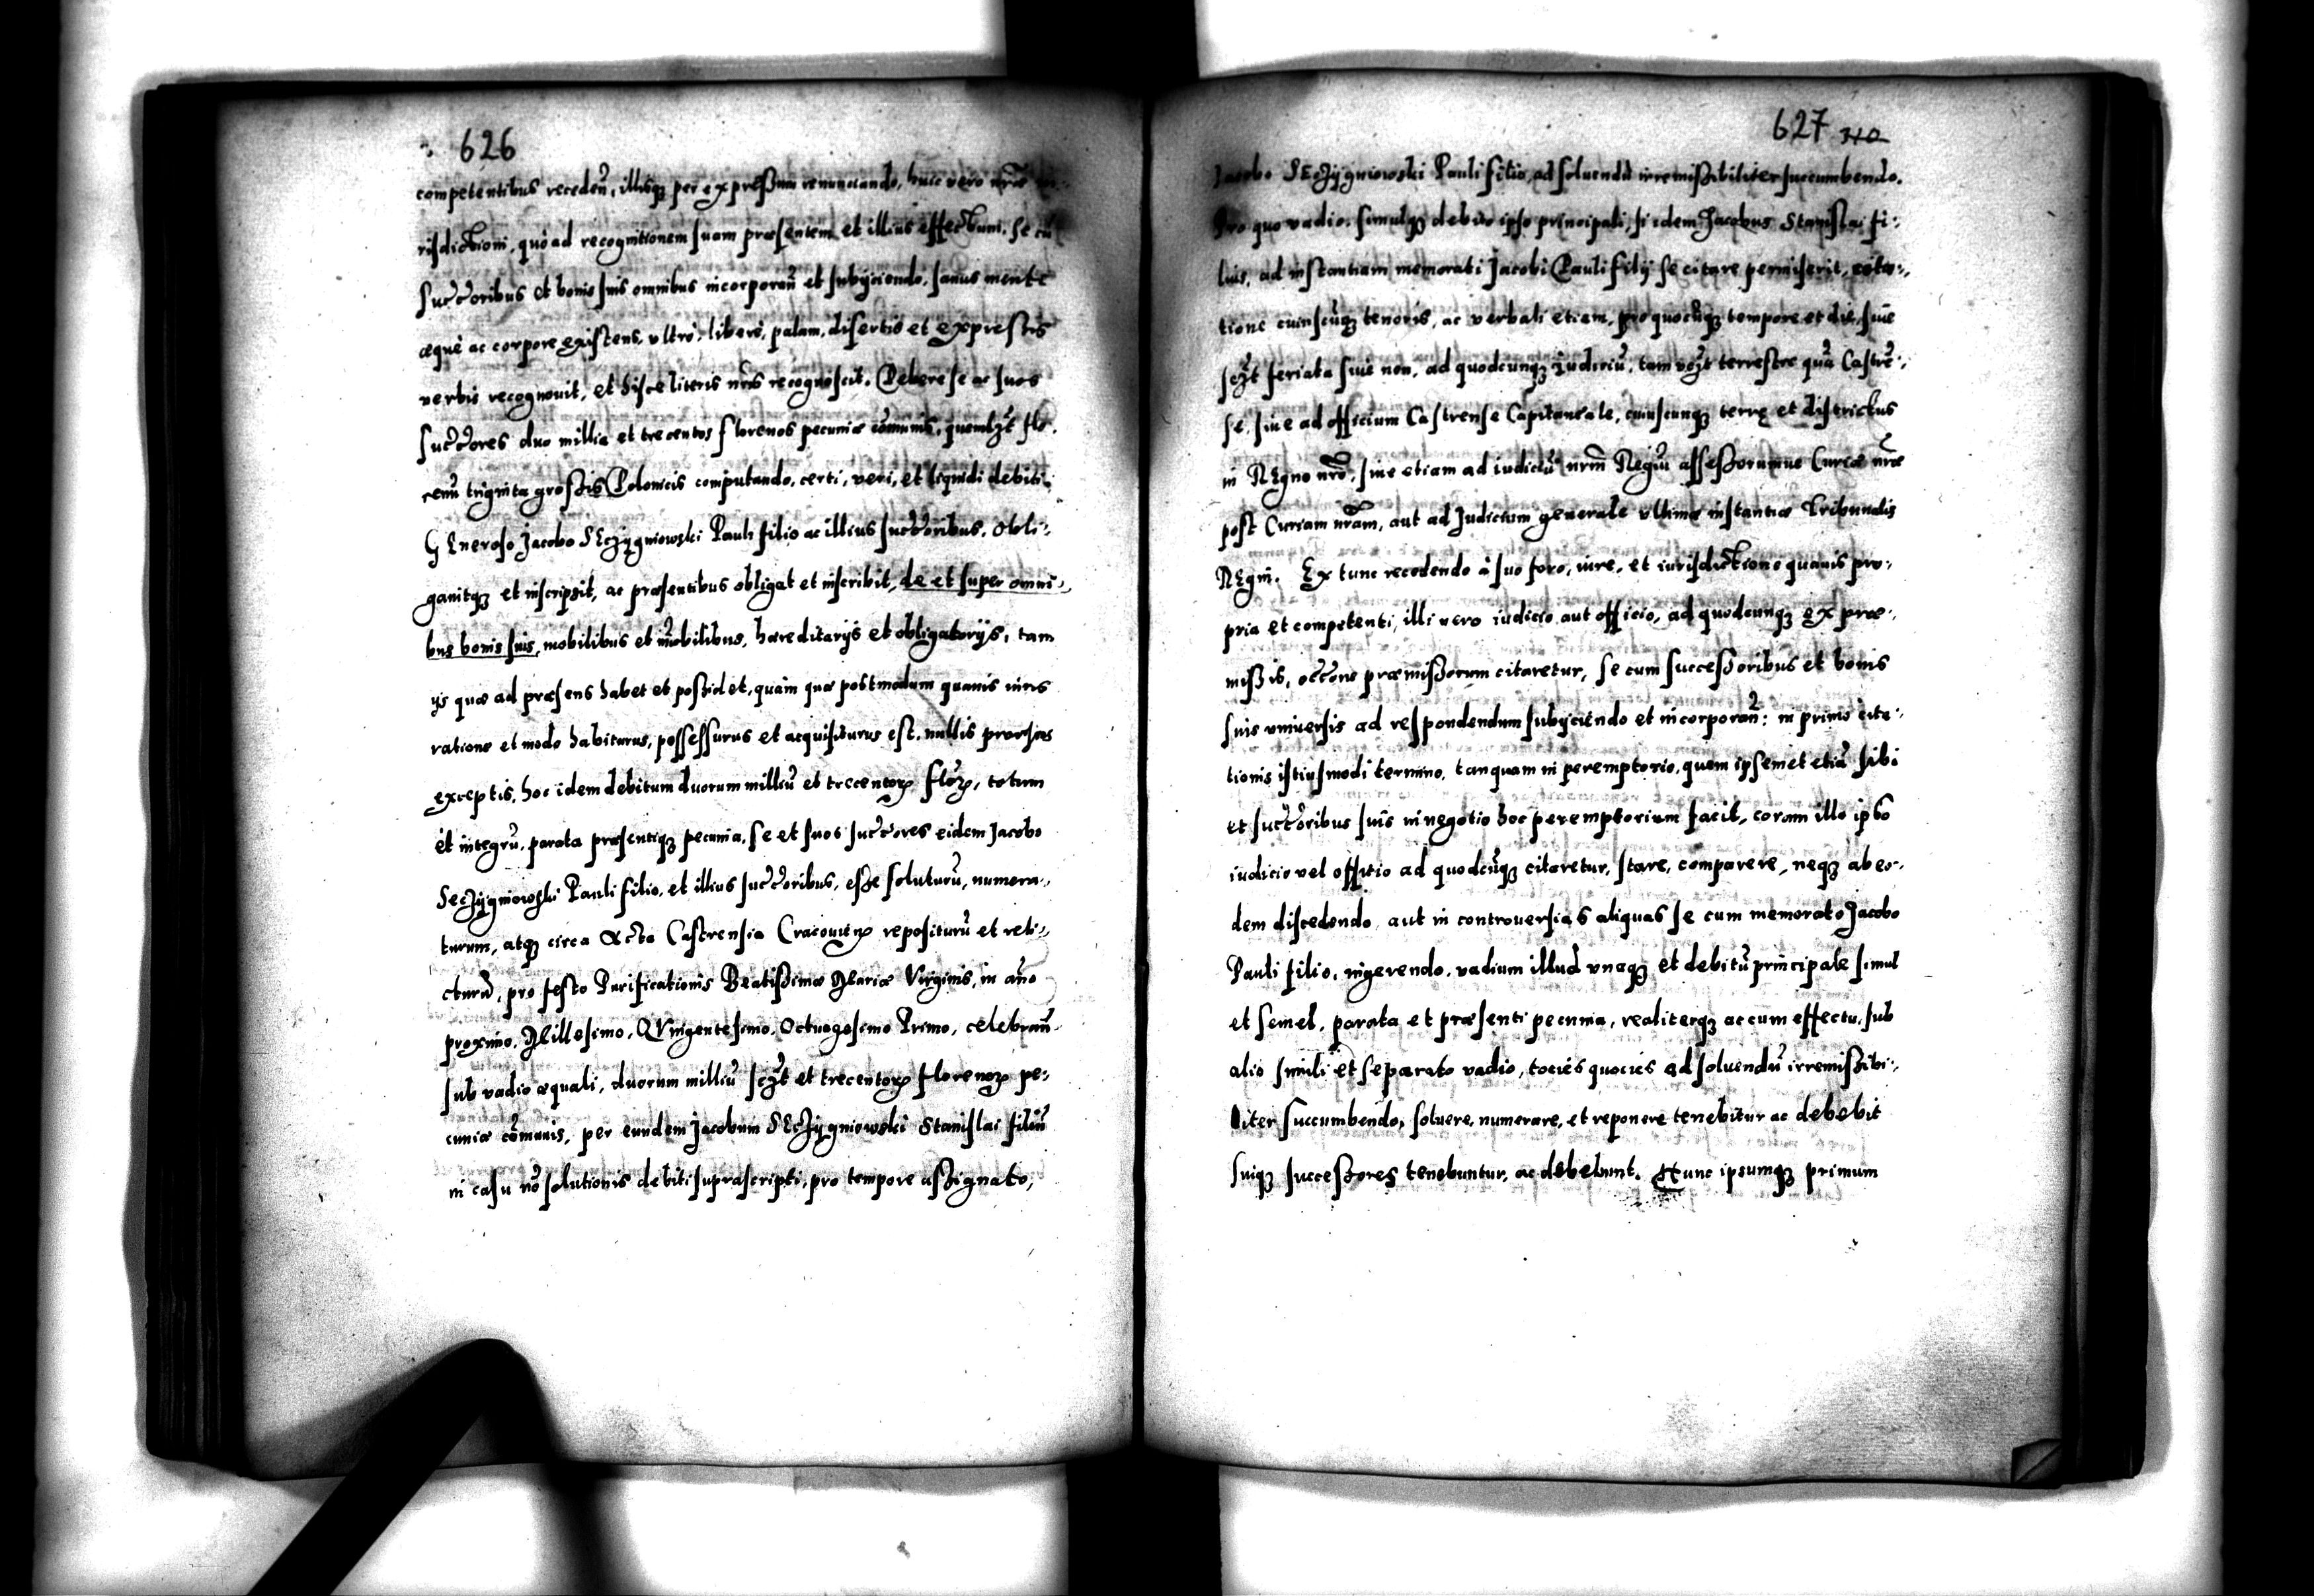 626
competentibus recedeñ, illisqȝ per expressum renunciando, huic vero nr̃æ
risdictioni, quò ad recognitionem suam præsentem et illius effectum, se cũ
succ̃oribus et bonis suis omnibus incorporañ et subÿciendo, sanus mente
æquè ac corpore existens, vltrò, liberè, palam, disertis et expressis
verbis recognouit, et hisce literis nr̃is recognoscit. Debere se ac suos
succ̃ores duo millia et trecentos florenos pecuniæ cõmunis, quemlȝt flo-
renũ triginta grossis Polonicis computando, certi, veri, et liquidi debiti,
GEneroso Jacobo SEcȝygniowski Pauli filio ac illius succ̃oribus. Obli-
gauitqȝ et inscripsit, ac præsentibus obligat et inscribit, de et super omni-
bus bonis suis, mobilibus et im̃obilibus, hæreditarÿs et obligatorÿs, tam
ÿs quæ ad præsens habet et possidet, quàm quæ postmodum quauis iuris
ratione et modo habiturus, possessurus et acquisiturus est, nullis prorsus
exceptis, hoc idem debitum duorum milliũ et trecentoꝝ floꝝ, totum
et integrũ, parata præsentiqȝ pecunia, se et suos succ̃ores eidem Jacobo
Secȝygniowski Pauli filio, et illius succ̃oribus, esse soluturũ, numera-
turum, atqȝ circa Acta Castrensia Cracouieñ repositurũ et reli-
cturũ, pro festo Purificationis Beatissimæ Mariæ Virginis, in añno
proximo, Millesimo, QVingentesimo, Octuagesimo Primo, celebrañ
sub vadio æquali, duorum milliũ scȝt et trecentoꝝ florenoꝝ pe-
cuniæ cõmunis, per eundem Jacobum SEcȝygniowski Stanislai filiũ
in casu nõ solutionis debiti suprascripti, pro tempore assignato,
627 310
Jacobo SEcȝygniowski Pauli filio, ad soluendũ irremissibiliter succumbendo.
Pro quo vadio, simulqȝ debito ipso principali, si idem Jacobus Stanislai fi-
lius, ad instantiam memorati Jacobi Pauli filÿ se citare permiserit, cita-
tione cuiuscũqȝ tenoris, ac verbali etiam, pro quocũqȝ tempore et die, siue
scȝt feriata siue non, ad quodcunqȝ iudiciũ, tam vȝt terrestre quã Castrẽ-
se, siue ad officium Castrense Capitaneale, cuiuscunqȝ terrę et districtus
in REgno nr̃o, siue etiam ad iudiciũ nr̃m Regiũ assessorumue Curiæ nr̃æ
post Curiam nr̃am, aut ad Judicium generale vltimæ instantiæ Tribunalis
REgni. Ex tunc recedendo à suo foro, iure, et iurisdictione quauis pro-
pria et competenti, illi vero iudicio aut officio, ad quodcunqȝ ex præ-
missis, occ̃one præmissorum citaretur, se cum successoribus et bonis
suis vniuersis ad respondendum subÿciendo et incorporañ: in primo cita-
tionis istiusmodi termino, tanquam in peremptorio, quem ipsemet etiã sibi
et succ̃oribus suis in negotio hoc peremptorium facit, coram illo ipso
iudicio vel officio ad quodcũqȝ citaretur, stare, comparere, neqȝ ab eo-
dem discedendo, aut in controuersias aliquas se cum memorato Jacobo
Pauli filio, ingerendo, vadium illud vnaqȝ et debitũ principale simul
et semel, parata et præsenti pecunia, realiterqȝ ac cum effectu, sub
alio simili et separato vadio, tociès quociès ad soluendũ irremissibi-
liter succumbendo, soluere, numerare, et reponere tenebitur ac debebit
suiqȝ successores tenebuntur, ac debebunt. Et tunc ipsumqȝ primum